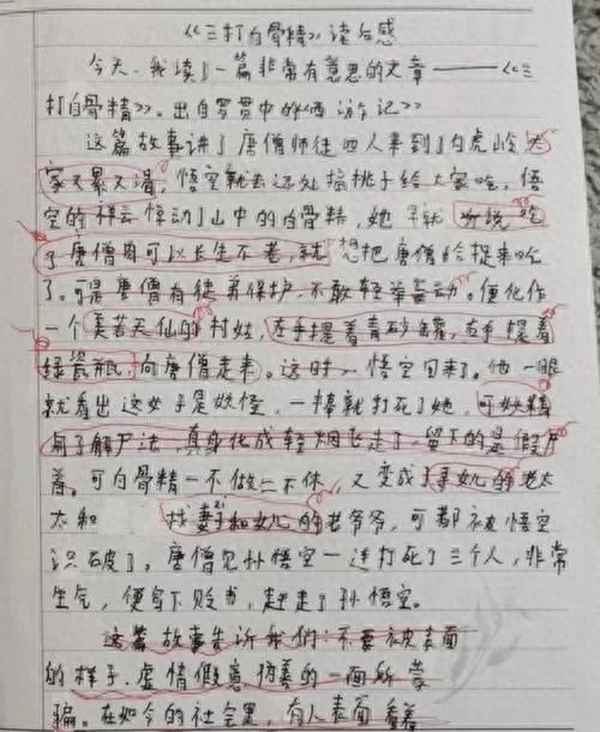 《三打白骨精》读后感
今天,我读了一篇非常有意思的文章——《三
打白骨精》。出自罗贯中的《西游记》
这篇故事讲了唐僧师徒四人来到了白虎岭,大
家又累又渴,悟空就去远处摘桃子给大家吃,悟
空的祥云惊动了山中的白骨精,她早就听说吃
了唐僧肉可以长生不老,就想把唐僧给捉来吃
了。可是唐僧有徒弟保护,不敢轻举妄动。便化作
一个美若天仙的村姑,左手提着青砂罐,右手提着
绿瓷瓶,向唐僧走来。这时,悟空回来了。他一眼
就看出这女子是妖怪,一棒就打死了她,可妖精
用了解尸法,真身化成轻烟飞走了,留下的是假尸
首。可白骨精一不做二不休,又变成了寻女儿的老太
太和 找妻子和女儿的老爷爷,可都被悟空
识破了。唐僧见孙悟空一连打死了三个人,非常
生气,便写下贬书,赶走了孙悟空。
这篇故事告诉我们:不要被表面
的样子、虚情假意伪善的一面所蒙
骗。在如今的社会里,有人表面看着